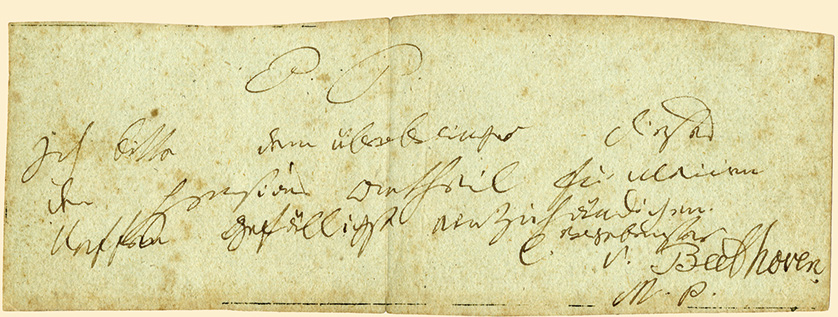 P. P.
Ich bitte dem überbringer dieses
den pensions antheil für meinen
Neffen gefälligst einzuhändigen.
ergebenster
v. Beethoven
M. P.